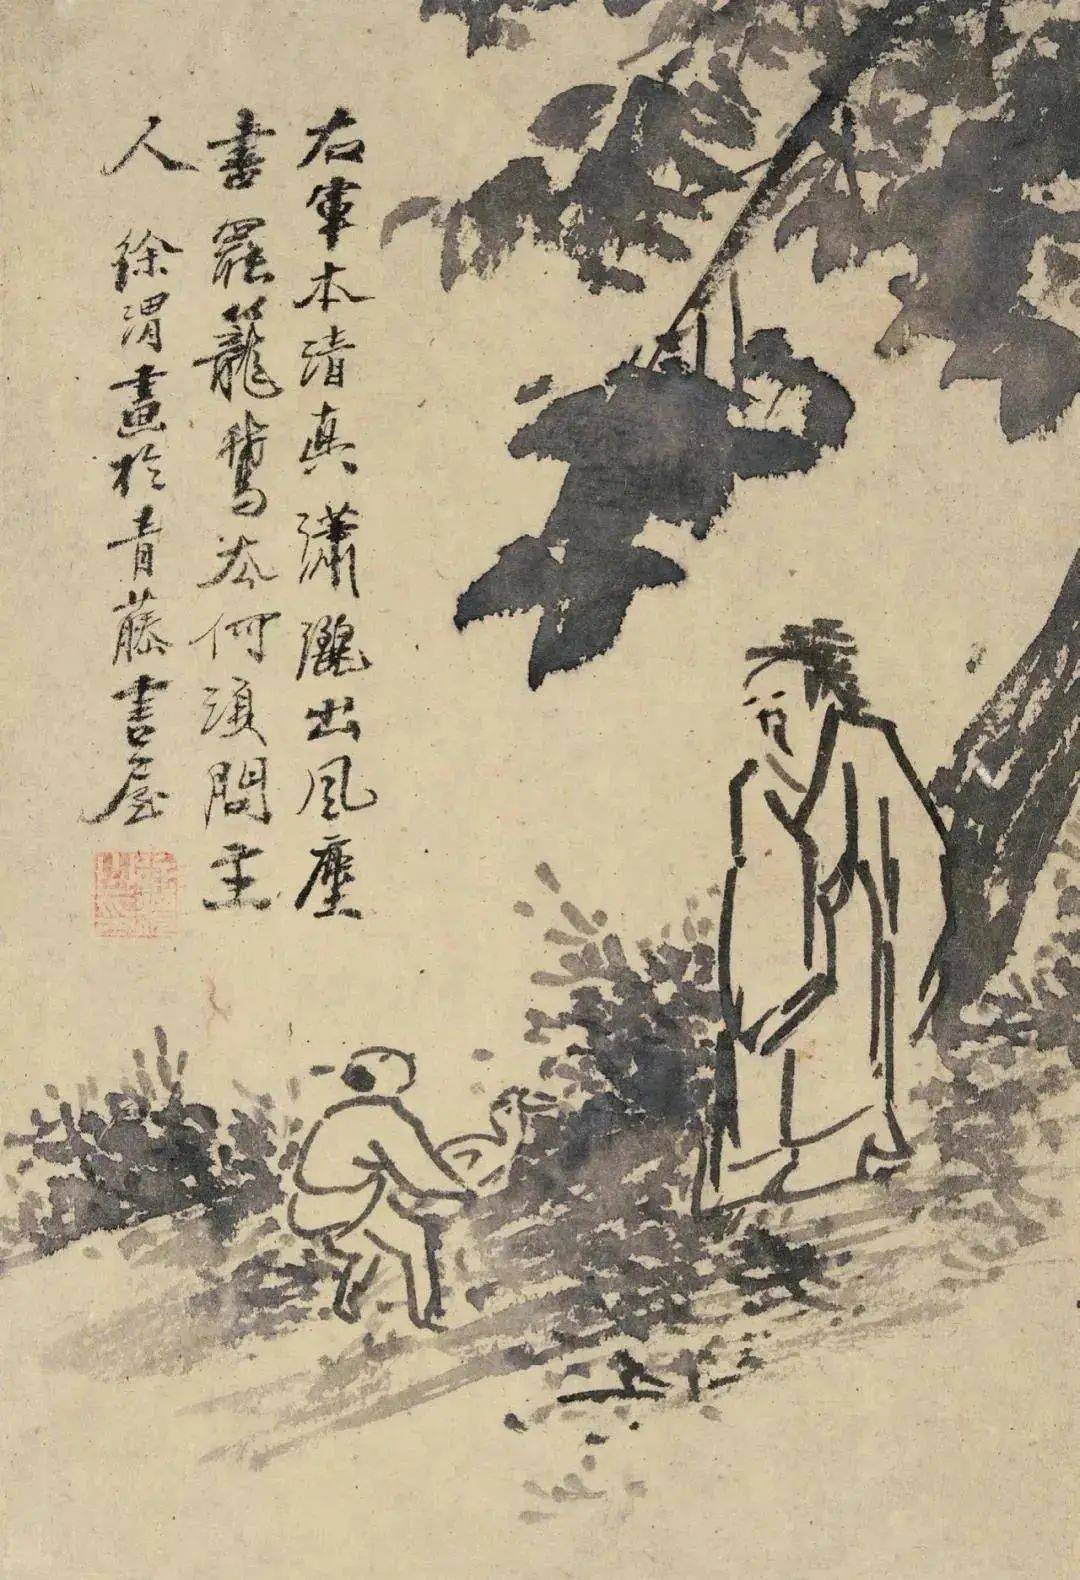 右軍本清真瀟灑出風塵
書罷籠鵝去何須問主
人 徐渭畫於青藤書屋